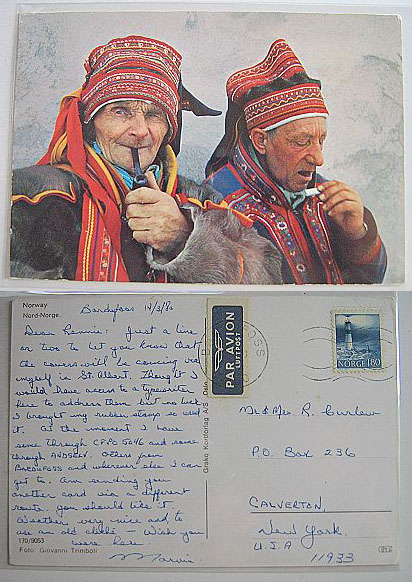 Norway
Nord-Norge.
Bardufoss 14/3/80
Dear Rennie: Just a line
or two to let you know that
the covers will be coming via
myself in St. Albert. Thought I
would have access to a typewriter
here to address them but no luck
I brought my rubber stamps so used
it. At the moment I have
some through CFPO 5046 and some
through ANDSELV. Others from
BARDUFOSS and wherever else I can
get to. Am sending you
another card via a different
route. you should like it
Weather very nice and to
use an old cliché - Wish you
were here.
Marvin
170/9053
Foto: Giovanni Trimboli
Grako Kortforlag A/S, Oslo
PAR AVION
LUFTPOST
OSS
NORGE 180
Mr & Mrs R. Curlew
P.O. Box 236
CALVERTON,
New York.
USA
11933